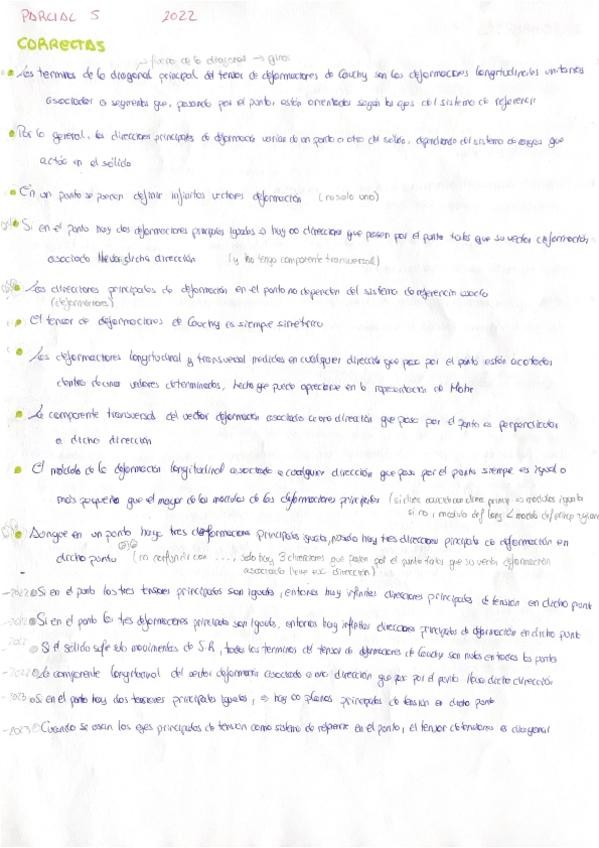 PARCIAL 5 2022
CORRECTAS
fuera de la diagonal → giros
Los terminos de la diagonal principal del tensor de deformaciones de Cauchy son las deformaciones longitudinales unitarias
asociadas a segmentos que, pasando por el punto, están orientados según los ejes del sistema de referencia
Por lo general, las direcciones principales de deformación varían de un punto a otro del sólido, dependiendo del sistema de cargas que
actúa en el sólido
En un punto se pueden definir infinitos vectores deformación (no solo uno)
Si en el punto hay dos deformaciones principales iguales ⇒ hay ∞ direcciones que pasen por el punto tales que su vector deformación
asociado lleva dicha dirección (y no tenga componente transversal)
Las direcciones principales de deformación en el punto no dependen del sistema de referencia usado
(deformaciones)
El tensor de deformaciones de Cauchy es siempre simétrico
Las deformaciones longitudinal y transversal medidas en cualquier dirección que pase por el punto están acotadas
dentro de unos valores determinados, hecho que puede apreciarse en la representación de Mohr
La componente transversal del vector deformación asociado a una dirección que pasa por el punto es perpendicular
a dicha dirección
El módulo de la deformación longitudinal asociada a cualquier dirección que pasa por el punto siempre es igual o
más pequeño que el mayor de los módulos de las deformaciones principales (si direc coincide con direc princip ⇒ modulos iguales
si no, modulo def long < modulo def princip
Aunque en un punto haya tres deformaciones principales iguales, puede hay tres direcciones principales de deformación en
dicho punto (no confundir con ..., solo hay 3 direcciones que pasen por el punto tales que su vector deformación
asociado lleve esa dirección)
-2022 Si en el punto las tres tensiones principales son iguales, entonces hay infinitas direcciones principales de tensión en dicho punto
Si en el punto las tres deformaciones principales son iguales, entonces hay infinitas direcciones principales de deformación en dicho punto
Si el sólido sufre solo movimientos de S.R, todos los terminos del tensor de deformaciones de Cauchy son nulos en todos los puntos
-2022 La componente longitudinal del vector deformación asociado a una dirección que pasa por el punto lleva dicha dirección
-2023 Si en el punto hay dos tensiones principales iguales, ⇒ hay ∞ planos principales de tensión en dicho punto
-2023 Cuando se usan los ejes principales de tensión como sistema de referencia en el punto, el tensor de tensiones es diagonal